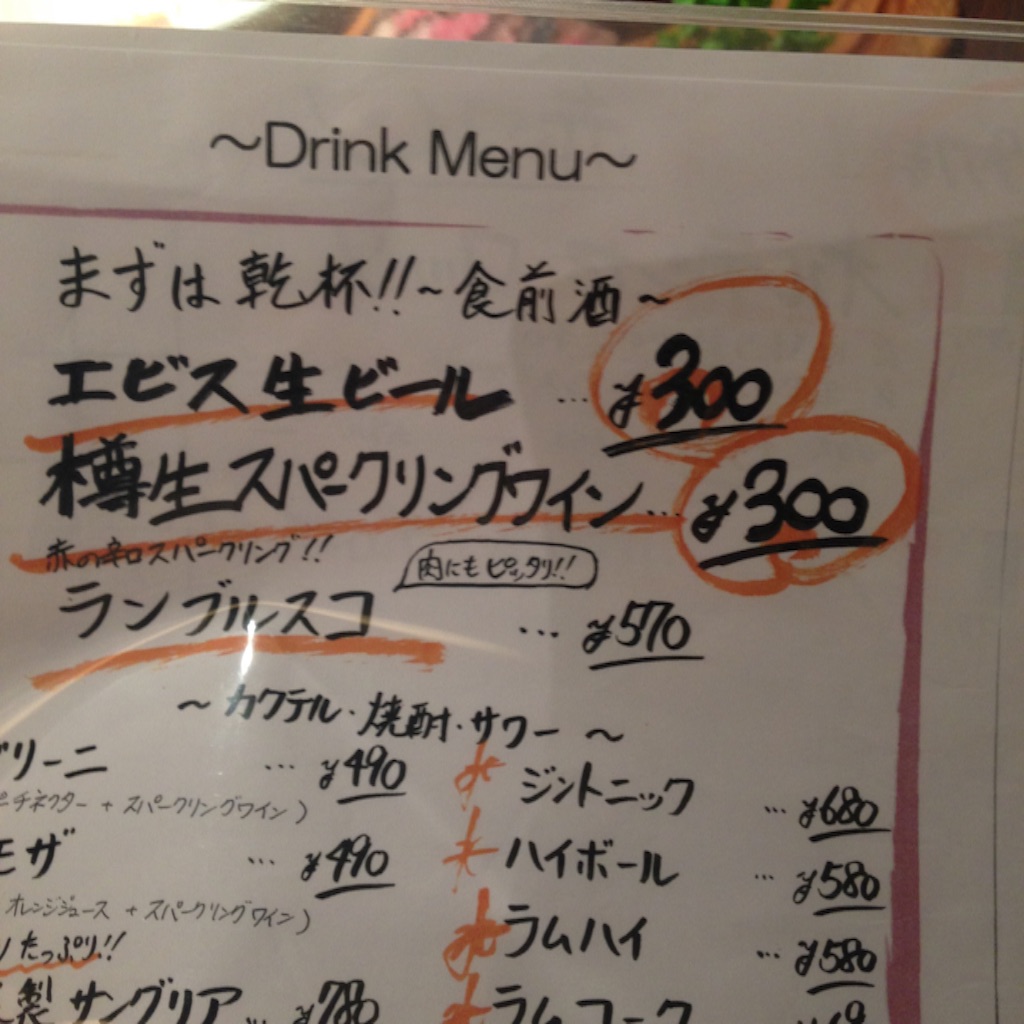 ～Drink Menu～
まずは乾杯!!～食前酒～
エビス生ビール … ¥300
樽生スパークリングワイン… ¥300
赤の辛口スパークリング!!
肉にもピッタリ!!
ランブルスコ … ¥570
～カクテル・焼酎・サワー～
リーニ … ¥490
チネクター + スパークリングワイン)
モザ … ¥490
オレンジジュース + スパークリングワイン)
たっぷり!!
製サングリア… ¥780
ジントニック … ¥680
ハイボール … ¥580
ラムハイ … ¥580
ラムコーク